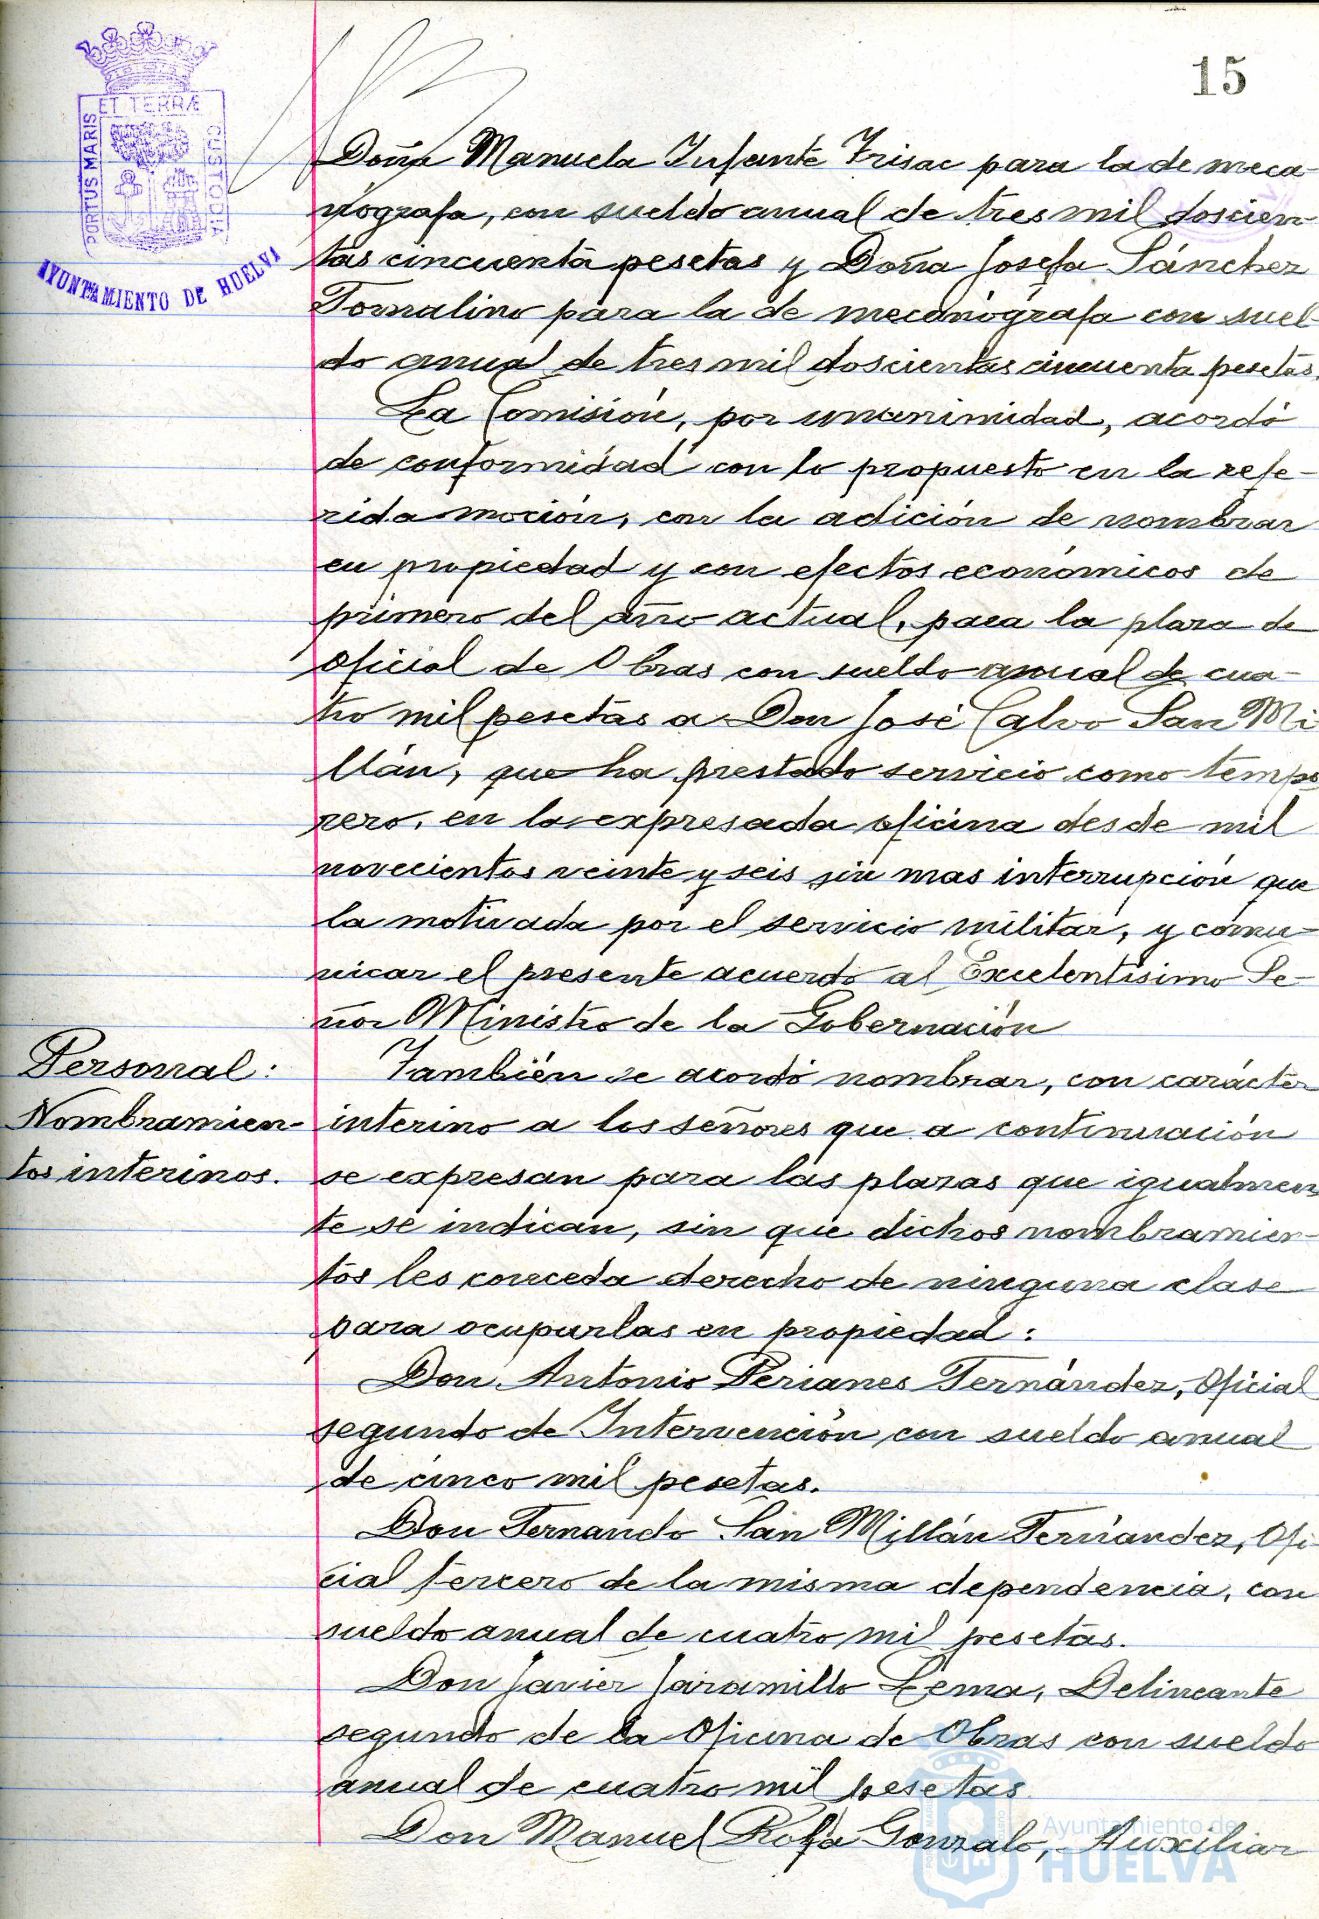 15
ET TERRÆ
PORTUS MARIS
CUSTODIA
AYUNTAMIENTO DE HUELVA
Doña Manuela Infante Trisac para la de meca-
nógrafa, con sueldo anual de tres mil doscien-
tas cincuenta pesetas y Doña Josefa Sánchez
Tornalino para la de mecanógrafa con suel-
do anual de tres mil doscientas cincuenta pesetas.
La Comisión, por unanimidad, acordó
de conformidad con lo propuesto en la refe-
rida moción, con la adición de nombrar
en propiedad y con efectos económicos de
primero del año actual, para la plaza de
Oficial de Obras con sueldo anual de cua-
tro mil pesetas a Don José Calvo San Mi
llán, que ha prestado servicio como tempo
rero, en la expresada oficina desde mil
novecientos veinte y seis sin mas interrupción que
la motivada por el servicio militar, y comu-
nicar el presente acuerdo al Excelentísimo Se-
ñor Ministro de la Gobernación
Personal:
Nombramien-
tos interinos.
También se acordó nombrar, con carácter
interino a los señores que a continuación
se expresan para las plazas que igualmen
te se indican, sin que dichos nombramien-
tos les conceda derecho de ninguna clase
para ocuparlas en propiedad:
Don Antonio Perianes Fernández, Oficial
segundo de Intervención con sueldo anual
de cinco mil pesetas.
Don Fernando San Millán Fernández, Ofi-
cial tercero de la misma dependencia, con
sueldo anual de cuatro mil pesetas.
Don Javier Jaramillo Lema, Delineante
segundo de la Oficina de Obras con sueldo
anual de cuatro mil pesetas
Don Manuel Rofa Gonzalo, Auxiliar
Ayuntamiento de
HUELVA